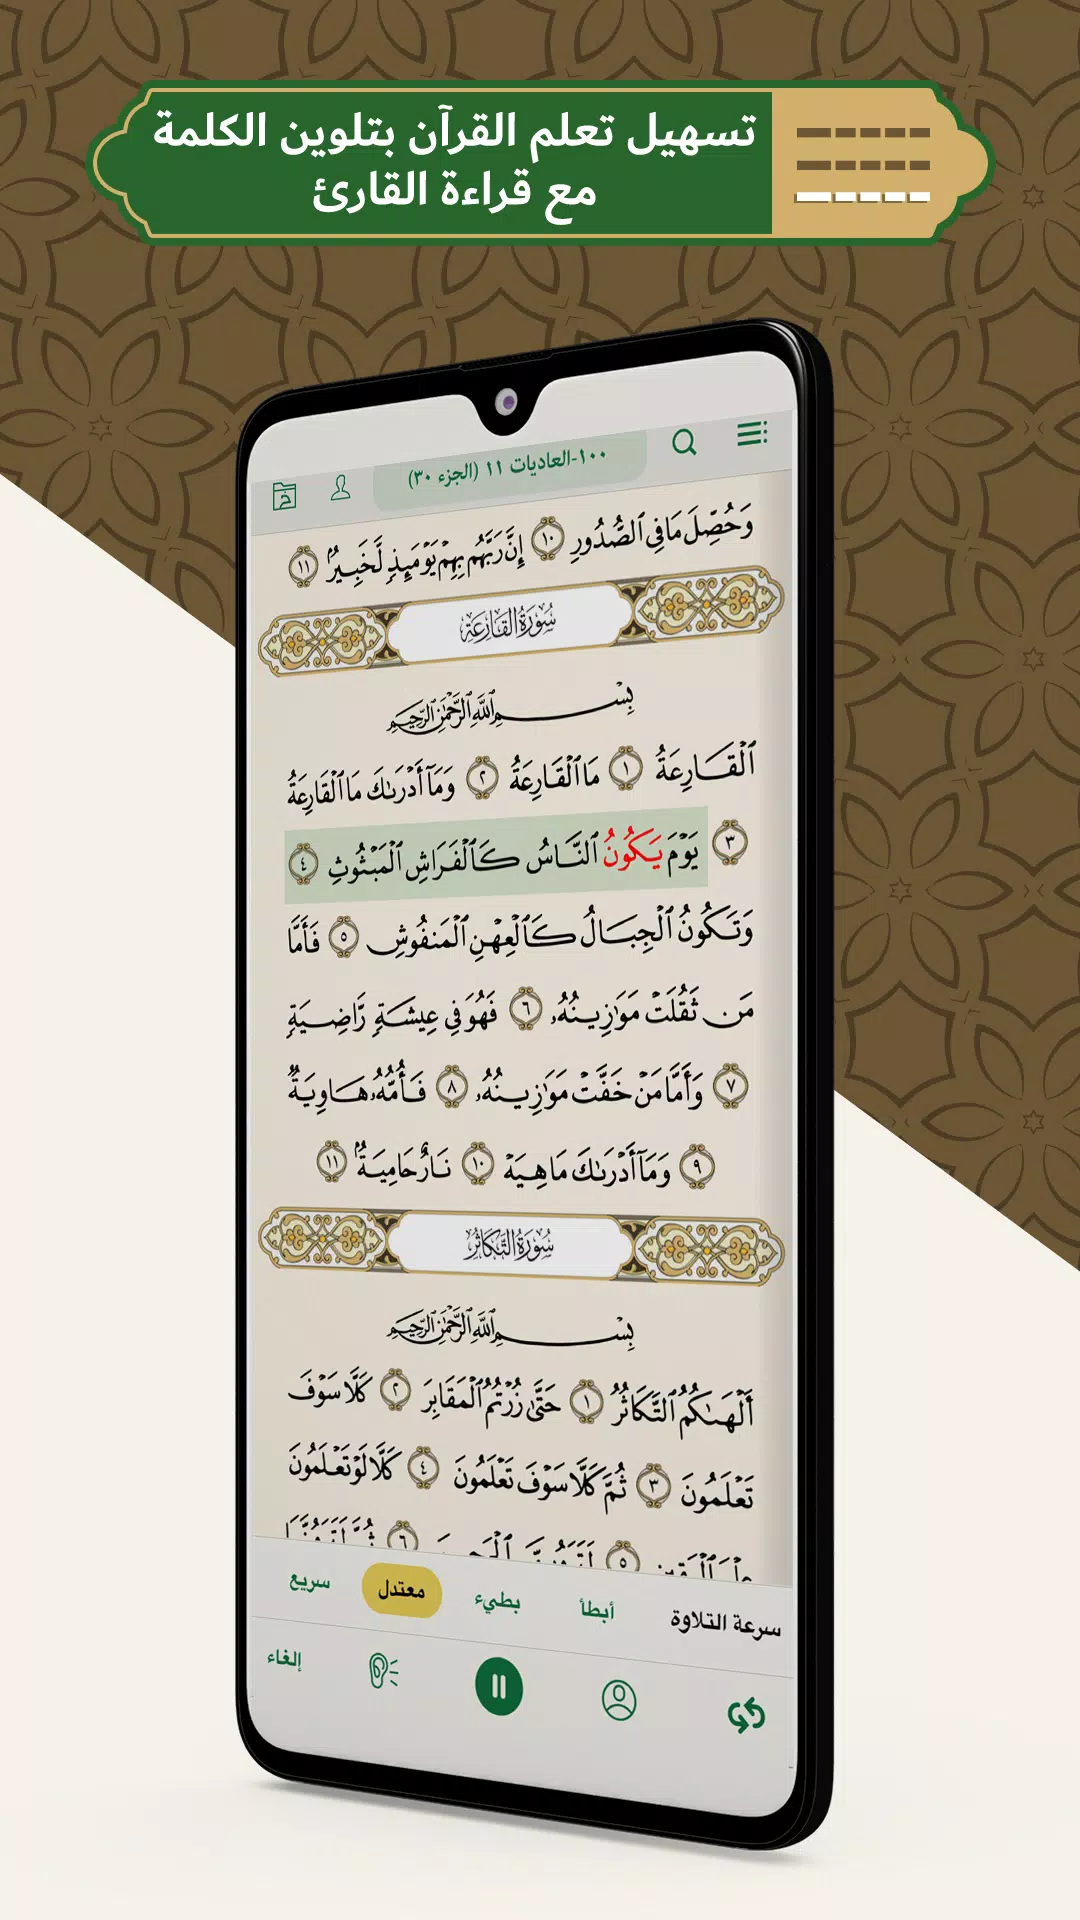 تسهيل تعلم القرآن بتلوين الكلمة
مع قراءة القارئ
١٠٠-العاديات ١١ (الجزء ٣٠)
وَحُصِّلَ مَا فِي ٱلصُّدُورِ ١٠ إِنَّ رَبَّهُم بِهِمْ يَوْمَئِذٍ لَّخَبِيرٌۢ ١١
سُورَةُ القَارِعَةِ
بِسْمِ ٱللَّهِ ٱلرَّحْمَٰنِ ٱلرَّحِيمِ
ٱلْقَارِعَةُ ١ مَا ٱلْقَارِعَةُ ٢ وَمَآ أَدْرَىٰكَ مَا ٱلْقَارِعَةُ
٣ يَوْمَ يَكُونُ ٱلنَّاسُ كَٱلْفَرَاشِ ٱلْمَبْثُوثِ ٤
وَتَكُونُ ٱلْجِبَالُ كَٱلْعِهْنِ ٱلْمَنفُوشِ ٥ فَأَمَّا
مَن ثَقُلَتْ مَوَٰزِينُهُۥ ٦ فَهُوَ فِي عِيشَةٍ رَّاضِيَةٍ
٧ وَأَمَّا مَنْ خَفَّتْ مَوَٰزِينُهُۥ ٨ فَأُمُّهُۥ هَاوِيَةٌ
٩ وَمَآ أَدْرَىٰكَ مَا هِيَهْ ١٠ نَارٌ حَامِيَةٌۢ ١١
سُورَةُ التَّكَاثُرِ
بِسْمِ ٱللَّهِ ٱلرَّحْمَٰنِ ٱلرَّحِيمِ
أَلْهَىٰكُمُ ٱلتَّكَاثُرُ ١ حَتَّىٰ زُرْتُمُ ٱلْمَقَابِرَ ٢ كَلَّا سَوْفَ
تَعْلَمُونَ ٣ ثُمَّ كَلَّا سَوْفَ تَعْلَمُونَ ٤ كَلَّا لَوْ تَعْلَمُونَ
٥ ٦
سرعة التلاوة أبطأ بطيء معتدل سريع
إلغاء